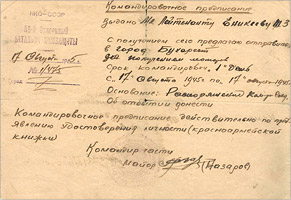 Командировочное предписание
Выдано Мл Лейтенанту Еникееву
С получением сего предлагаю отправиться
в город Бухарест
для получения
Срок командировки 1 день
С "17" Августа 1945 г по "17" августа 1945
Основание: Распоряжение
Об отбытии донести
Командировочное предписание действительно по пред
явлению удостоверения личности (красноармейской
книжки)
Командир части
майор (Назаров)
НКО-СССР
17 Августа
№ 1475